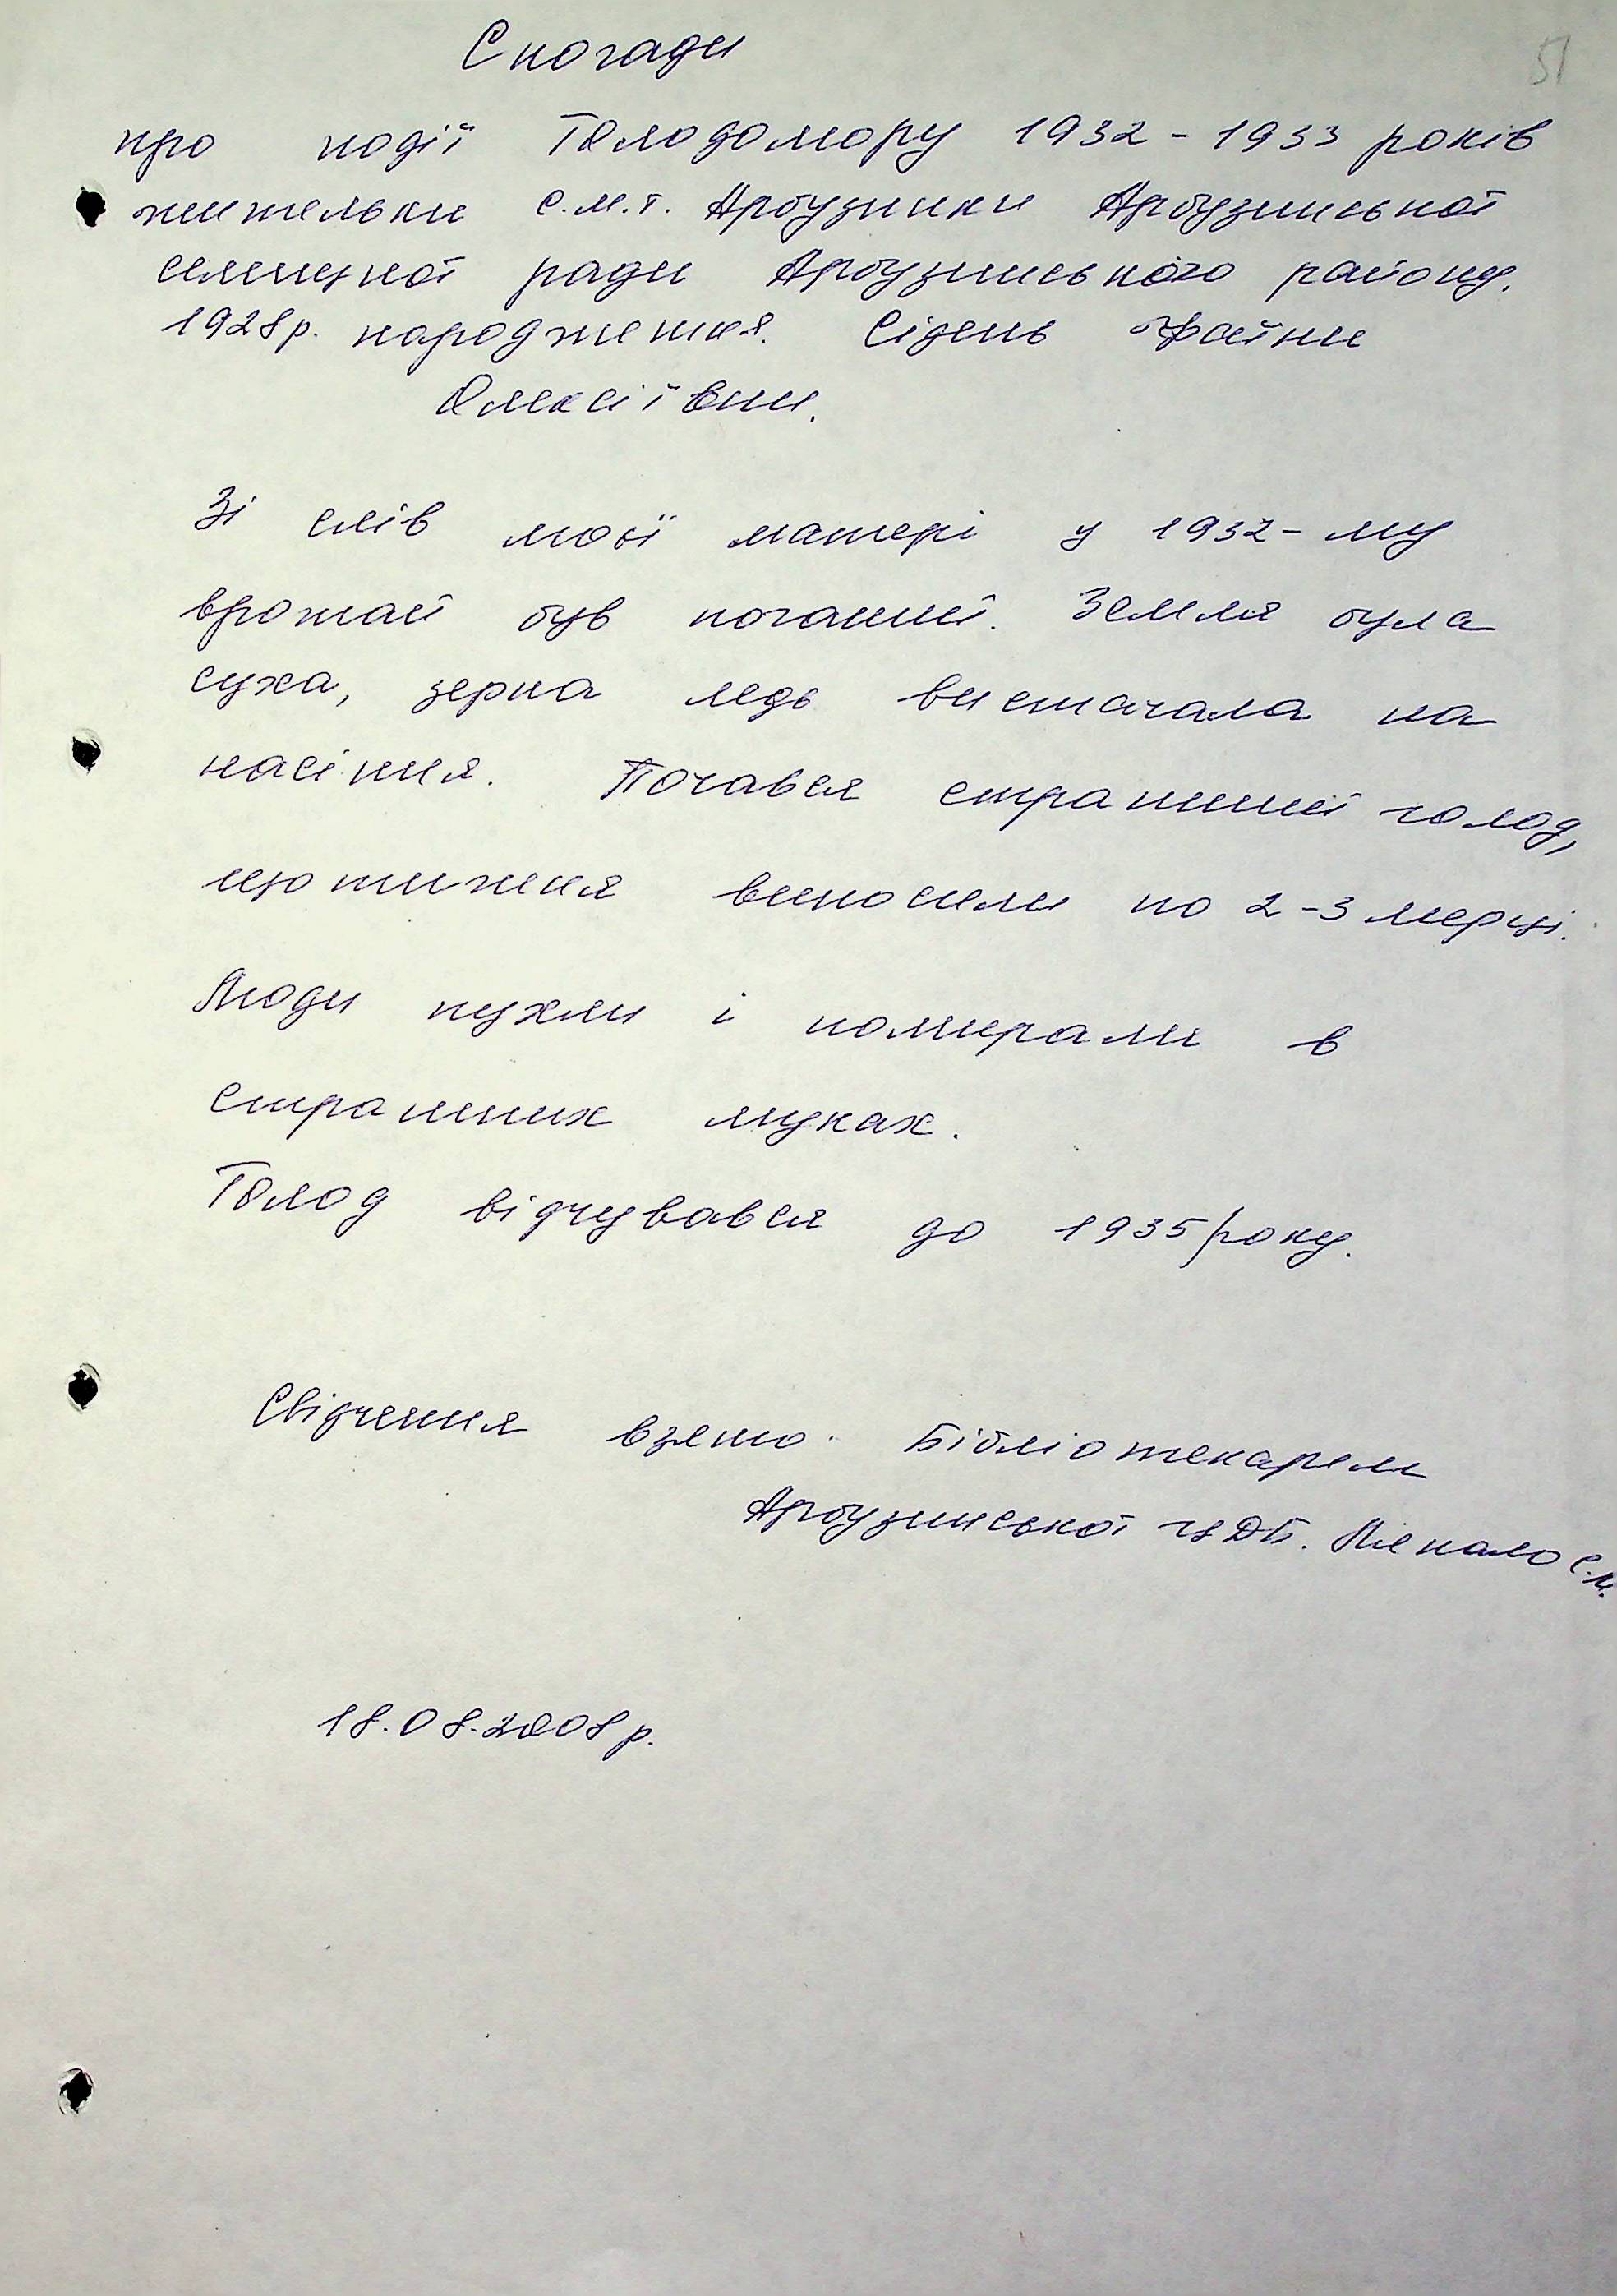 Спогади
51
про події Голодомору 1932-1933 років
жительки с.м.т. Арбузинки Арбузинської
селищної ради Арбузинського району.
1928р. народження. Сідень Фаїни
Олексіївни.
Зі слів моєї матері у 1932-му
врожай був поганий. Земля була
суха, зерна ледь вистачала на
насіння. Почався страшний голод,
щотижня виносили по 2-3 мерці.
Люди пухли і помирали в
страшних муках.
Голод відчувався до 1935 року.
Свідчення взято Бібліотекарем
Арбузинської ЦДБ. С.М.
18.08.2008р.